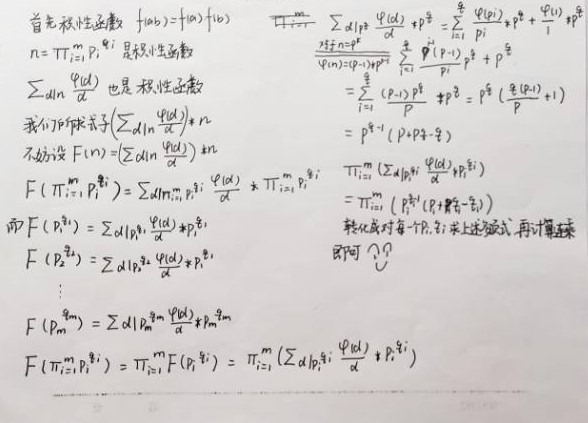 首先积性函数 f(ab)=f(a)f(b)
n=∏_{i=1}^{m} p_i^{q_i} 是积性函数
∑_{d|n} φ(d)/d 也是积性函数
我们所求式子(∑_{d|n} φ(d)/d)*n
不妨设 F(n)=(∑_{d|n} φ(d)/d)*n
F(∏_{i=1}^{m} p_i^{q_i})=∑_{d|∏_{i=1}^{m} p_i^{q_i}} φ(d)/d * ∏_{i=1}^{m} p_i^{q_i}
而F(p_1^{q_1})=∑_{d|p_1^{q_1}} φ(d)/d * p_1^{q_1}
F(p_2^{q_2})=∑_{d|p_2^{q_2}} φ(d)/d * p_2^{q_2}
⋮
F(p_m^{q_m})=∑_{d|p_m^{q_m}} φ(d)/d * p_m^{q_m}
F(∏_{i=1}^{m} p_i^{q_i})=∏_{i=1}^{m} F(p_i^{q_i})=∏_{i=1}^{m}(∑_{d|p_i^{q_i}} φ(d)/d * p_i^{q_i})
∑_{d|p^q} φ(d)/d * p^q=∑_{i=1}^{q} φ(p^i)/p^i * p^q+φ(1)/1 * p^q
对于n=p^k
φ(n)=(p-1)*p^{k-1} ∑_{i=1}^{q} p^{i-1}(p-1)/p^i p^q+p^q
=∑_{i=1}^{q} (p-1)p^q/p *p^q=p^q(q(p-1)/p+1)
=p^{q-1}(p+pq-q)
∏_{i=1}^{m}(∑_{d|p_i^{q_i}} φ(d)/d * p_i^{q_i})
=∏_{i=1}^{m}(p_i^{q_i-1}(p_i+p_iq_i-q_i))
转化成对每个p_i,q_i求上述式,再计算连乘
即可